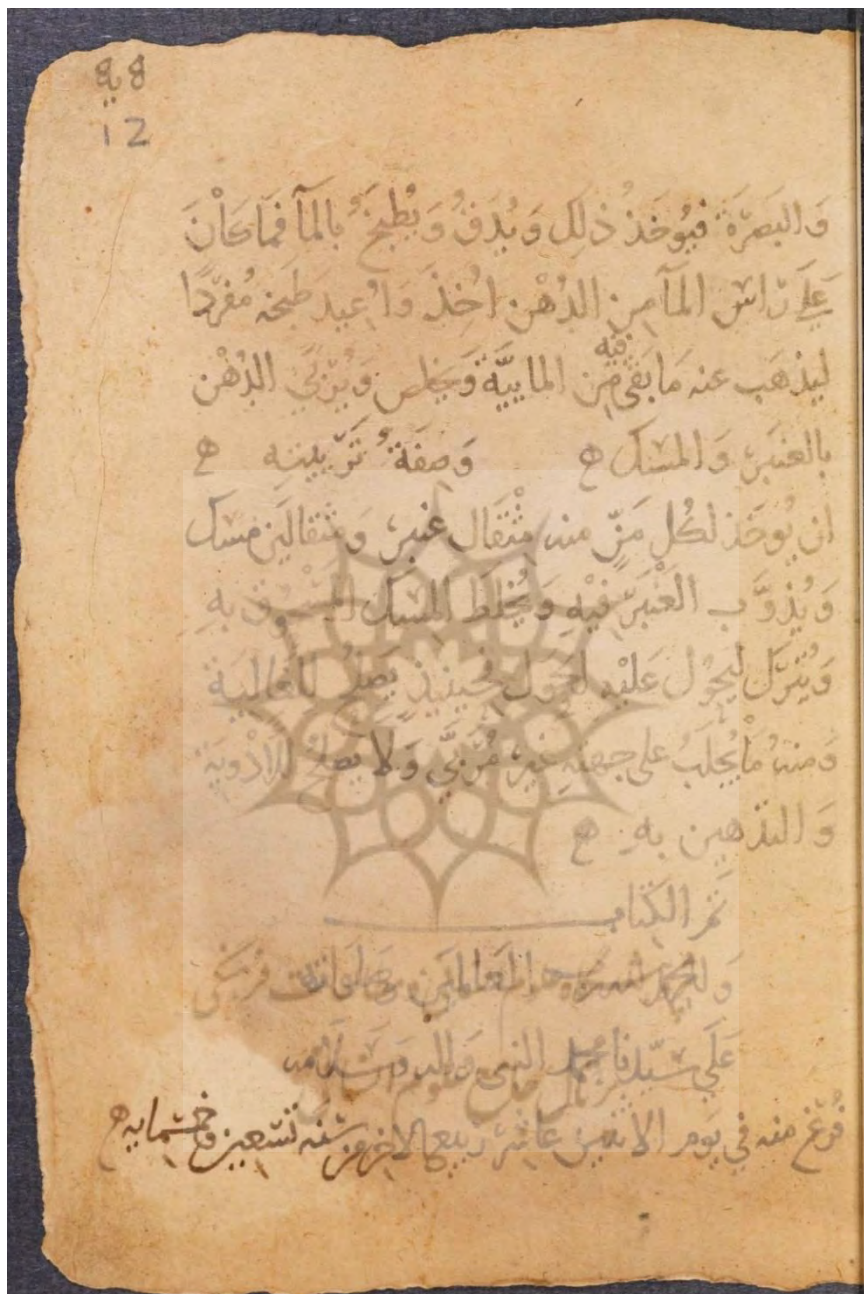 12
وَالبَصْرَة فيُوخَذُ ذلِك وَيُدَقُّ وَيُطبَخُ بالمآ فمَا كَانَ
عَلَى رَاس المآ مِن الدُهْن اُخِذَ وَاُعِيدَ طَبخه مُفرَدًا
ليذهَب عنه مَا بَقى فيه مِن الماييَّة وَيخلص وَيُربَّى الدُهْن
بالعنبَر وَالمسك ه وَصفَةُ تَربيته ه
ان يُوخَذ لكُل مَنّ منه مثْقَال عَنبر وَمثقالَين مسك
وَيُذوَّب العَنْبَر فيْهِ وَيُخلَط المسك المسحُوق بهِ
وَيُترَك ليَحُول عَليْه الحَول فحينيذٍ يَصْلحُ للغَالية
وَمنهُ مَا يُجلَبُ على جهتهِ غير مُربَّى وَلَا يَصلحُ للاَدْوية
وَالتدهين به ه
تَمّ الكتَاب
وَالحمد لله رب العَالمين وصلواته
عَلَى سَيّدنا محمد النبى وَاله وَسَلامه
فُرغ منه في يَوم الاثنين عَاشر رَبيع الاخر من سَنه تسْعين وخمسمايه ه